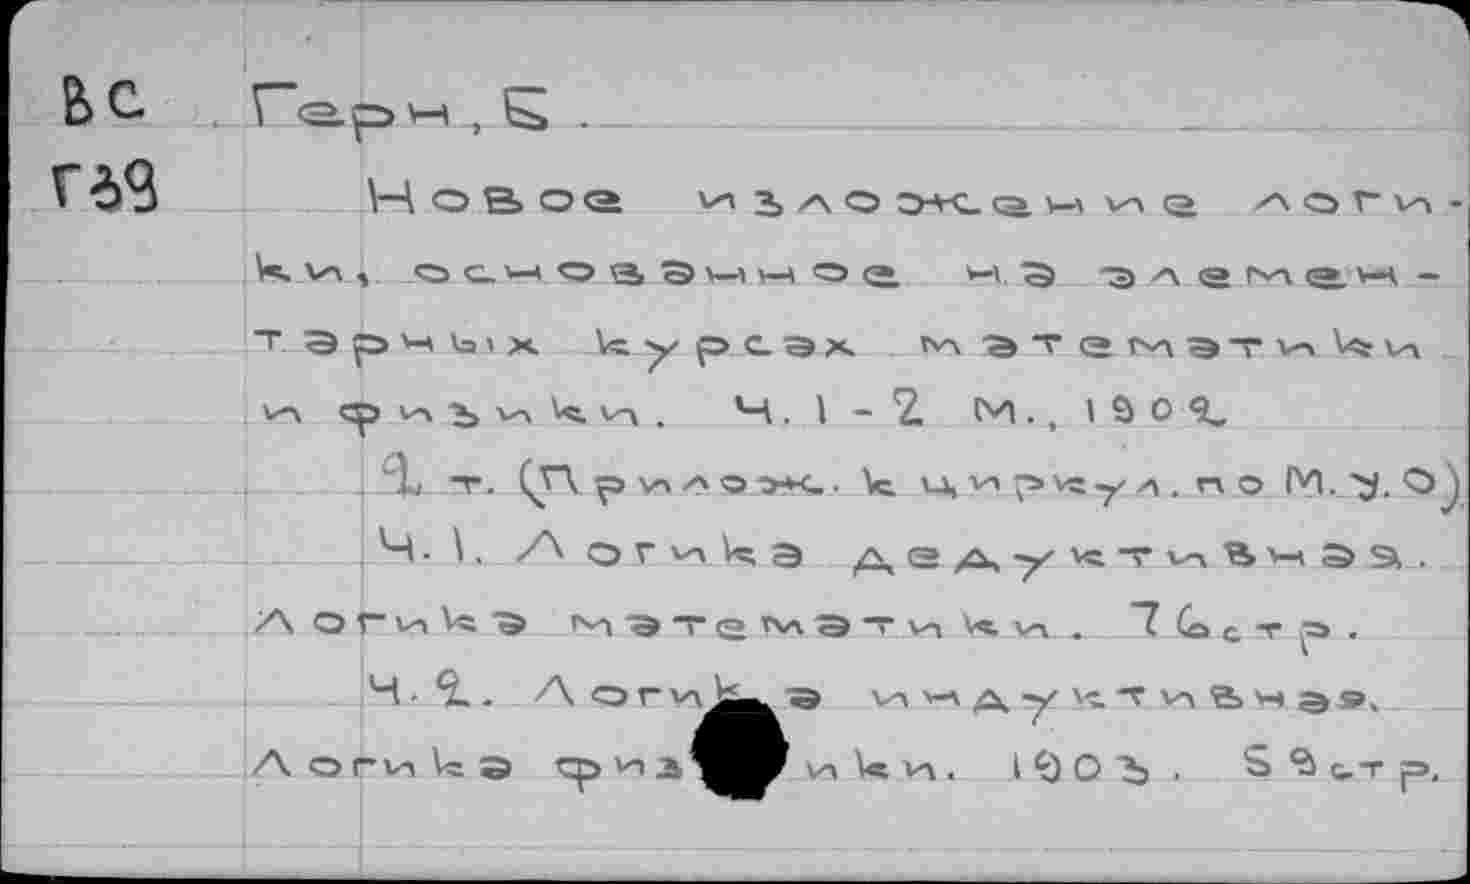 Вс Герн, Б.
Г39 Новое изложение логи-
ки, основанное на элемен-
тарных курсах математики
и физики. Ч. 1-2 М., 1902
2 т. (Прилож. к циркул. по М.У.О)
Ч. 1. Логика дедуктивная.
Логика математики. 76стр.
Ч. 2. Логика индуктивная.
Логика физики. 1903. 59стр.